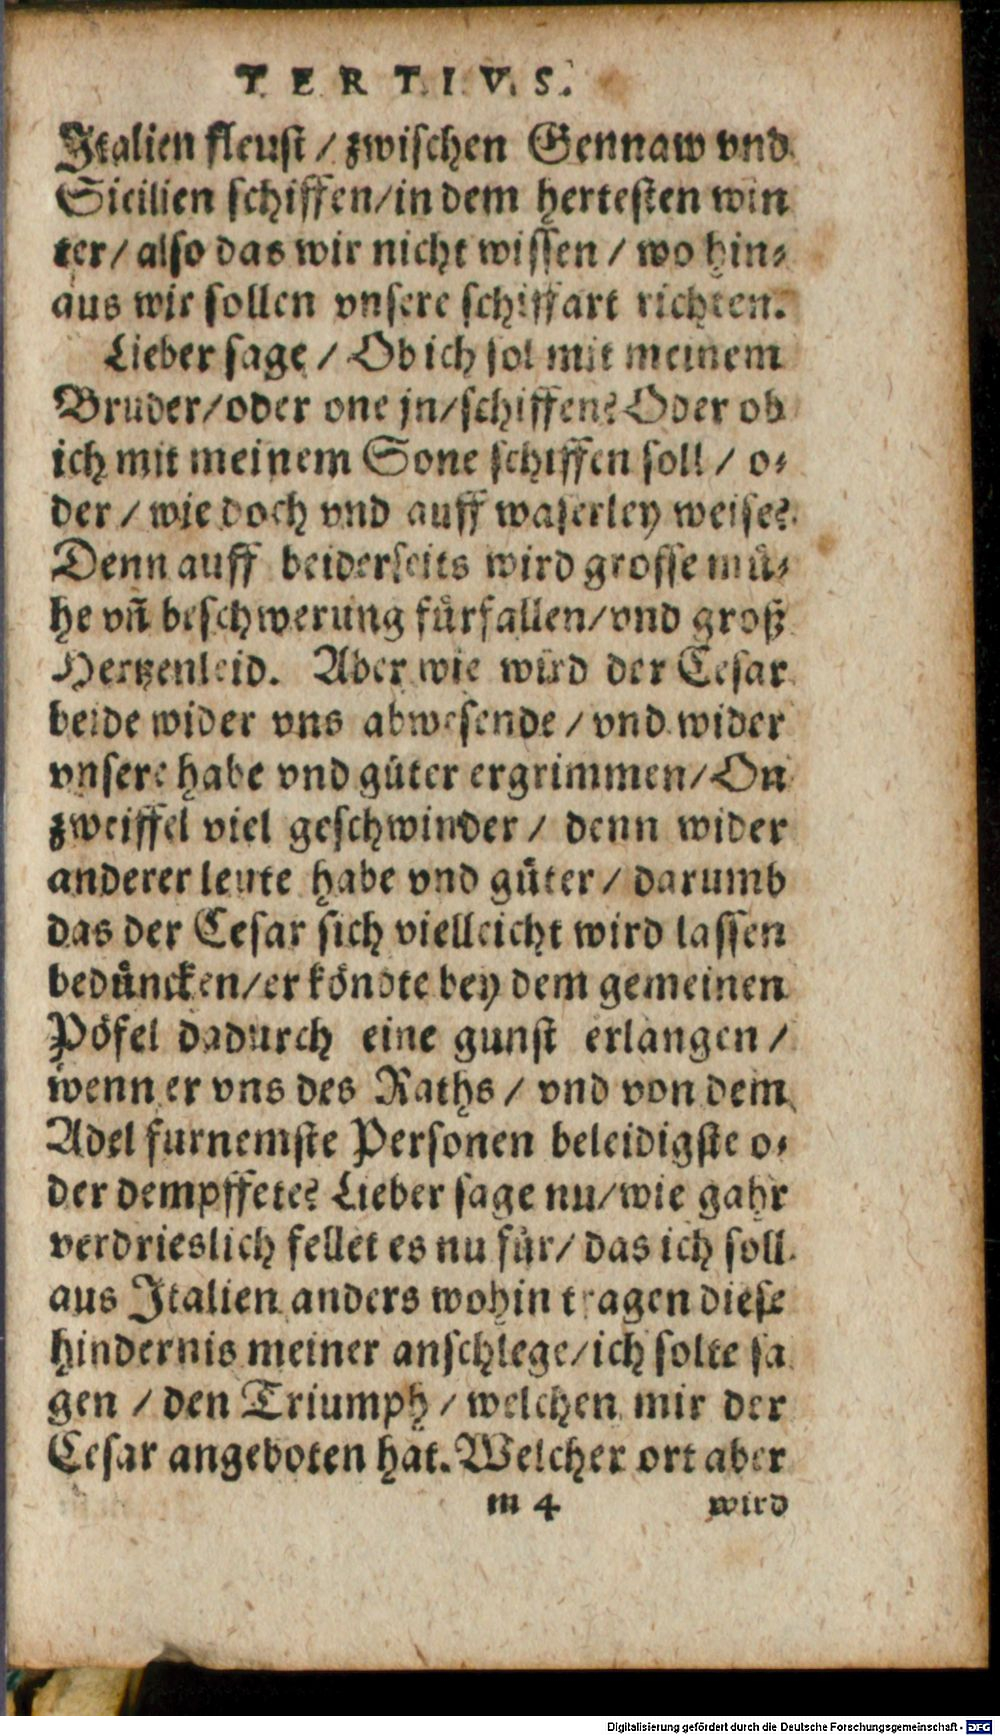 TERTIVS.
Italien fleust / zwischen Gennaw vnd
Sicilien schiffen/in dem hertesten win
ter/ also das wir nicht wissen / wo hin⸗
aus wir sollen vnsere schiffart richten.
Lieber sage / Ob ich sol mit meinem
Bruder/oder one jn/schiffen? Oder ob
ich mit meinem Sone schiffen soll / o⸗
der / wie doch vnd auff waserley weise?
Denn auff beiderseits wird grosse muͤ⸗
he vñ beschwerung fuͤrfallen/vnd groß
Hertzenleid. Aber wie wird der Cesar
beide wider vns abwesende / vnd wider
vnsere habe vnd guͤter ergrimmen/On
zweiffel viel geschwinder / denn wider
anderer leute habe vnd guͤter / darumb
das der Cesar sich vielleicht wird lassen
beduͤncken/er koͤndte bey dem gemeinen
Poͤfel dadurch eine gunst erlangen /
wenn er vns des Raths / vnd von dem
Adel furnemste Personen beleidigste o⸗
der dempffete? Lieber sage nu/wie gahr
verdrieslich fellet es nu fuͤr/ das ich soll
aus Italien anders wohin tragen diese
hindernis meiner anschlege/ich solte sa
gen / den Triumph / welchen mir der
Cesar angeboten hat. Welcher ort aber
m 4 wird
Digitalisierung gefördert durch die Deutsche Forschungsgemeinschaft - DFG